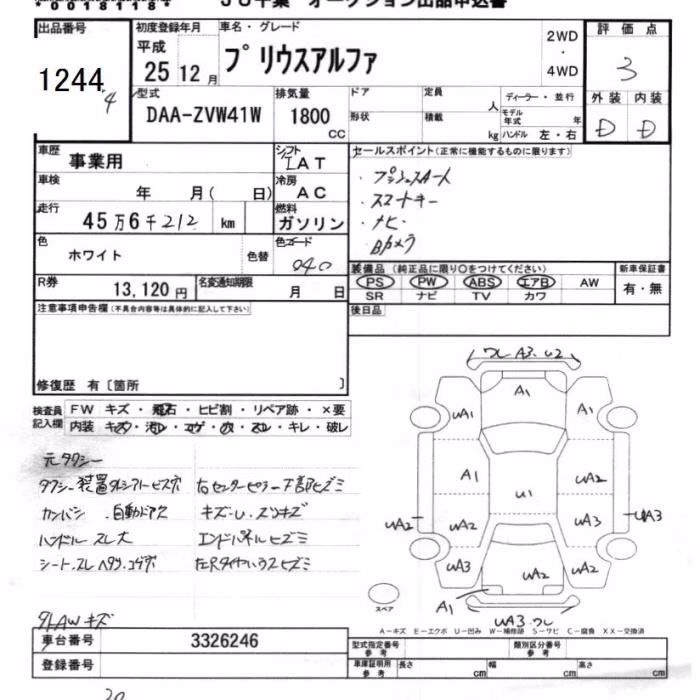 00181184 JU千葉 オークション出品申込書
出品番号 初度登録年月 車名・グレード 評価点
1244 4
平成 25 12月 プリウスアルファ 2WD・4WD 3
型式 DAA-ZVW41W 排気量 1800 CC
ドア 形状 定員 人 積載 kg ディーラー・並行 モデル年式 年 ハンドル 左・右
外装 内装
D D
車歴 事業用 シフト IAT
車検 年 月( 日) 冷房 AC
走行 45万6千212 km 燃料 ガソリン
色 ホワイト 色替 色コード 040
R券 13,120円 名変通知期限 月 日
セールスポイント(正常に機能するものに限ります)
・プッシュスタート
・スマートキー
・ナビ・
・Bカメラ
装備品(純正品に限り○をつけてください) 新車保証書
PS PW ABS エアB AW 有・無
SR ナビ TV カワ
後日品
注意事項申告欄(不具合内容等は具体的に記入して下さい)
修復歴 有〔箇所 〕
検査員記入欄 FW キズ・飛石・ヒビ割・リペア跡・×要
内装 キズ・汚レ・コゲ・穴・スレ・キレ・破レ
元タクシー
タクシー装置外シアトビス穴 右センターピラー下部ヒズミ
カンバン .自動ドアス キズ-U.スリキズ
ハンドル スレ大 エンドパネルヒズミ
シート.スレ ヘタリ.コゲ穴 左Rタイヤハウスヒズミ
外AWキズ
ワレ A3.U2
A1
UA1 A1
A1 U1 UA2
UA2 UA2 UA3 UA3
UA3 UA2 UA2
A1
UA3.ワレ
スペア
A-キズ E-エクボ U-凹み W-補修跡 S-サビ C-腐食 XX-交換済
車台番号 3326246
登録番号
型式指定番号 参考 類別区分番号 参考
車庫証明用 参考 長さ cm 幅 cm 高さ cm